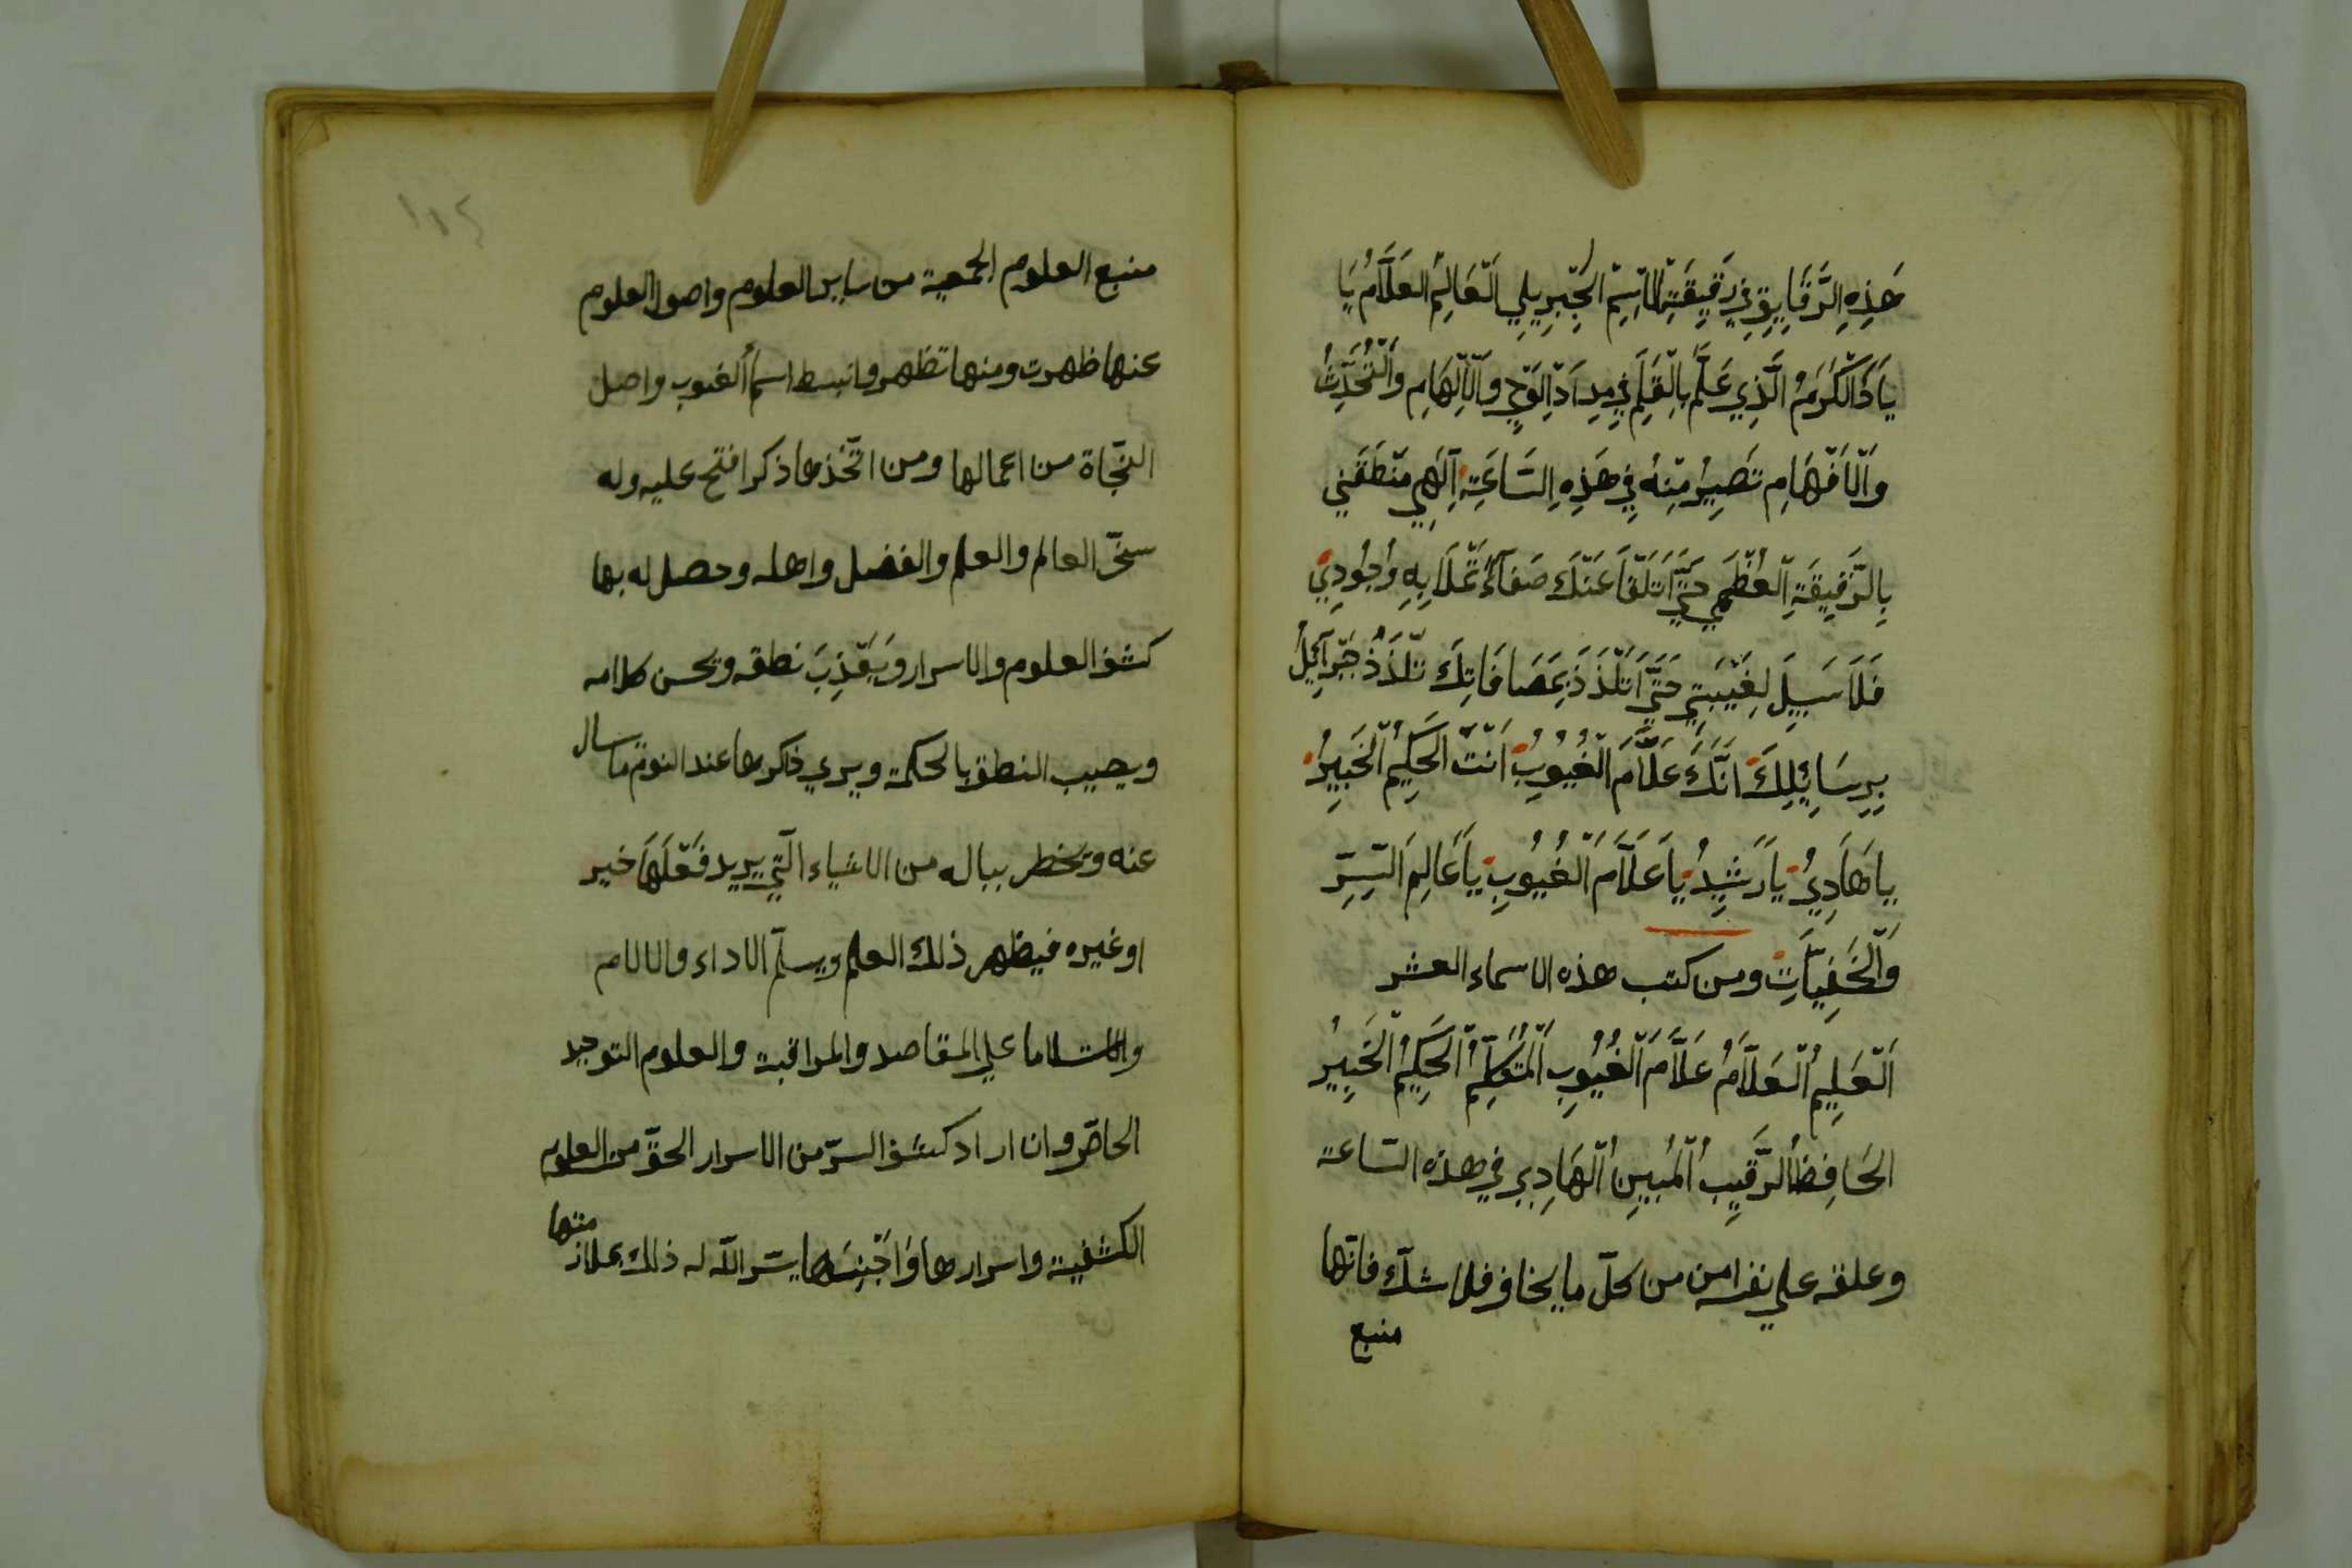 هَذِهِ الرَّقَايِقِ فِي رَقِيقَةِ الاِسِْم الجِّبِرِيلِي اَلْعَالِمُ العَلَّامُ يَا
يَا ذَالْكَرَمُ الَّذِي عَلَّمَ بِالْقَلَمِ فِي مِدَادِ الْوَحْيِ وَالْاِلْهَامِ وَالْتُّحَدِّثُ
وَالْاَفْهَامِ تَصِيرُ مِنْهُ فِي هَذِهِ السَّاعَةِ اِلَهِي مَنْطَقَنِي
بِالرَّقِيقَةِ الْعُظْمَي حَتَّي اَتَلَقَّا عَنْكَ صَفَآءً تَمْلَا بِهِ وُجُودِي
فَلَا سَبِيلَ لِغَيْبَتِي حَتَّي اَتَلَذَذَ بِمَصَافَاتِكَ تَلَذُذُ جِبْرَآئِلُ
بِرِسَايِلِكَ اِنَّكَ عَلَّامَ الْغُيُوبُِ اَنْتَ الْحَكِيمُ الْخَبِيرُ
يا هَادِيُ يَا رَشِيدُ يَا عَلَّامَ الْغُيُوبِ يَا عَالِمَ السِّرِّ
وَالْخَفِيَّاتِ ومن كتب هذه الاسماء العشر
اَلْعَلِيمُ الْعَلَّامُ عَلَّامَ الْغُيُوبِ الْمُتَكَلِّمُ الْحَكِيمُ الْخَبِيرُ
الحَافِظُ الرَّقِيبُ الْمُبِينُ الْهَادِي في هذه السّاعة
وعلقه علي نفسه امن من كلّ ما يخاف فلا شكّ فانّها
منبع
١١٤
منبع العلوم الجمعية من ساير العلوم واصول العلوم
عنها ظهرت ومنها تظهر وانبسط اسمأ الغيوب واصل
النجّاة من اعمالها ومن اتّخذها ذكرا فتح عليه وله
سخّر العالم والعلم والفضل واهله وحصل له بها
كشف العلوم والاسرار وَيَعْذِبَ نطقه ويحسن كلامه
ويصيب النطق بالحكمة ويري ذاكرها عند النوم ما سال
عنه ويخطر بباله من الاشياء الّتي يريد فَعْلَهَا خير
او غيره فيظهر ذلك العلم ويسلّم الاداء والالام
علي المقاصد والمراقبة والعلوم التوحيد
الخاصّ وان اراد كشف السرّ من الاسرار الحقّ من العلوم
الكشفية واسرارها يسّر اللّه له ذلك بملازمتها